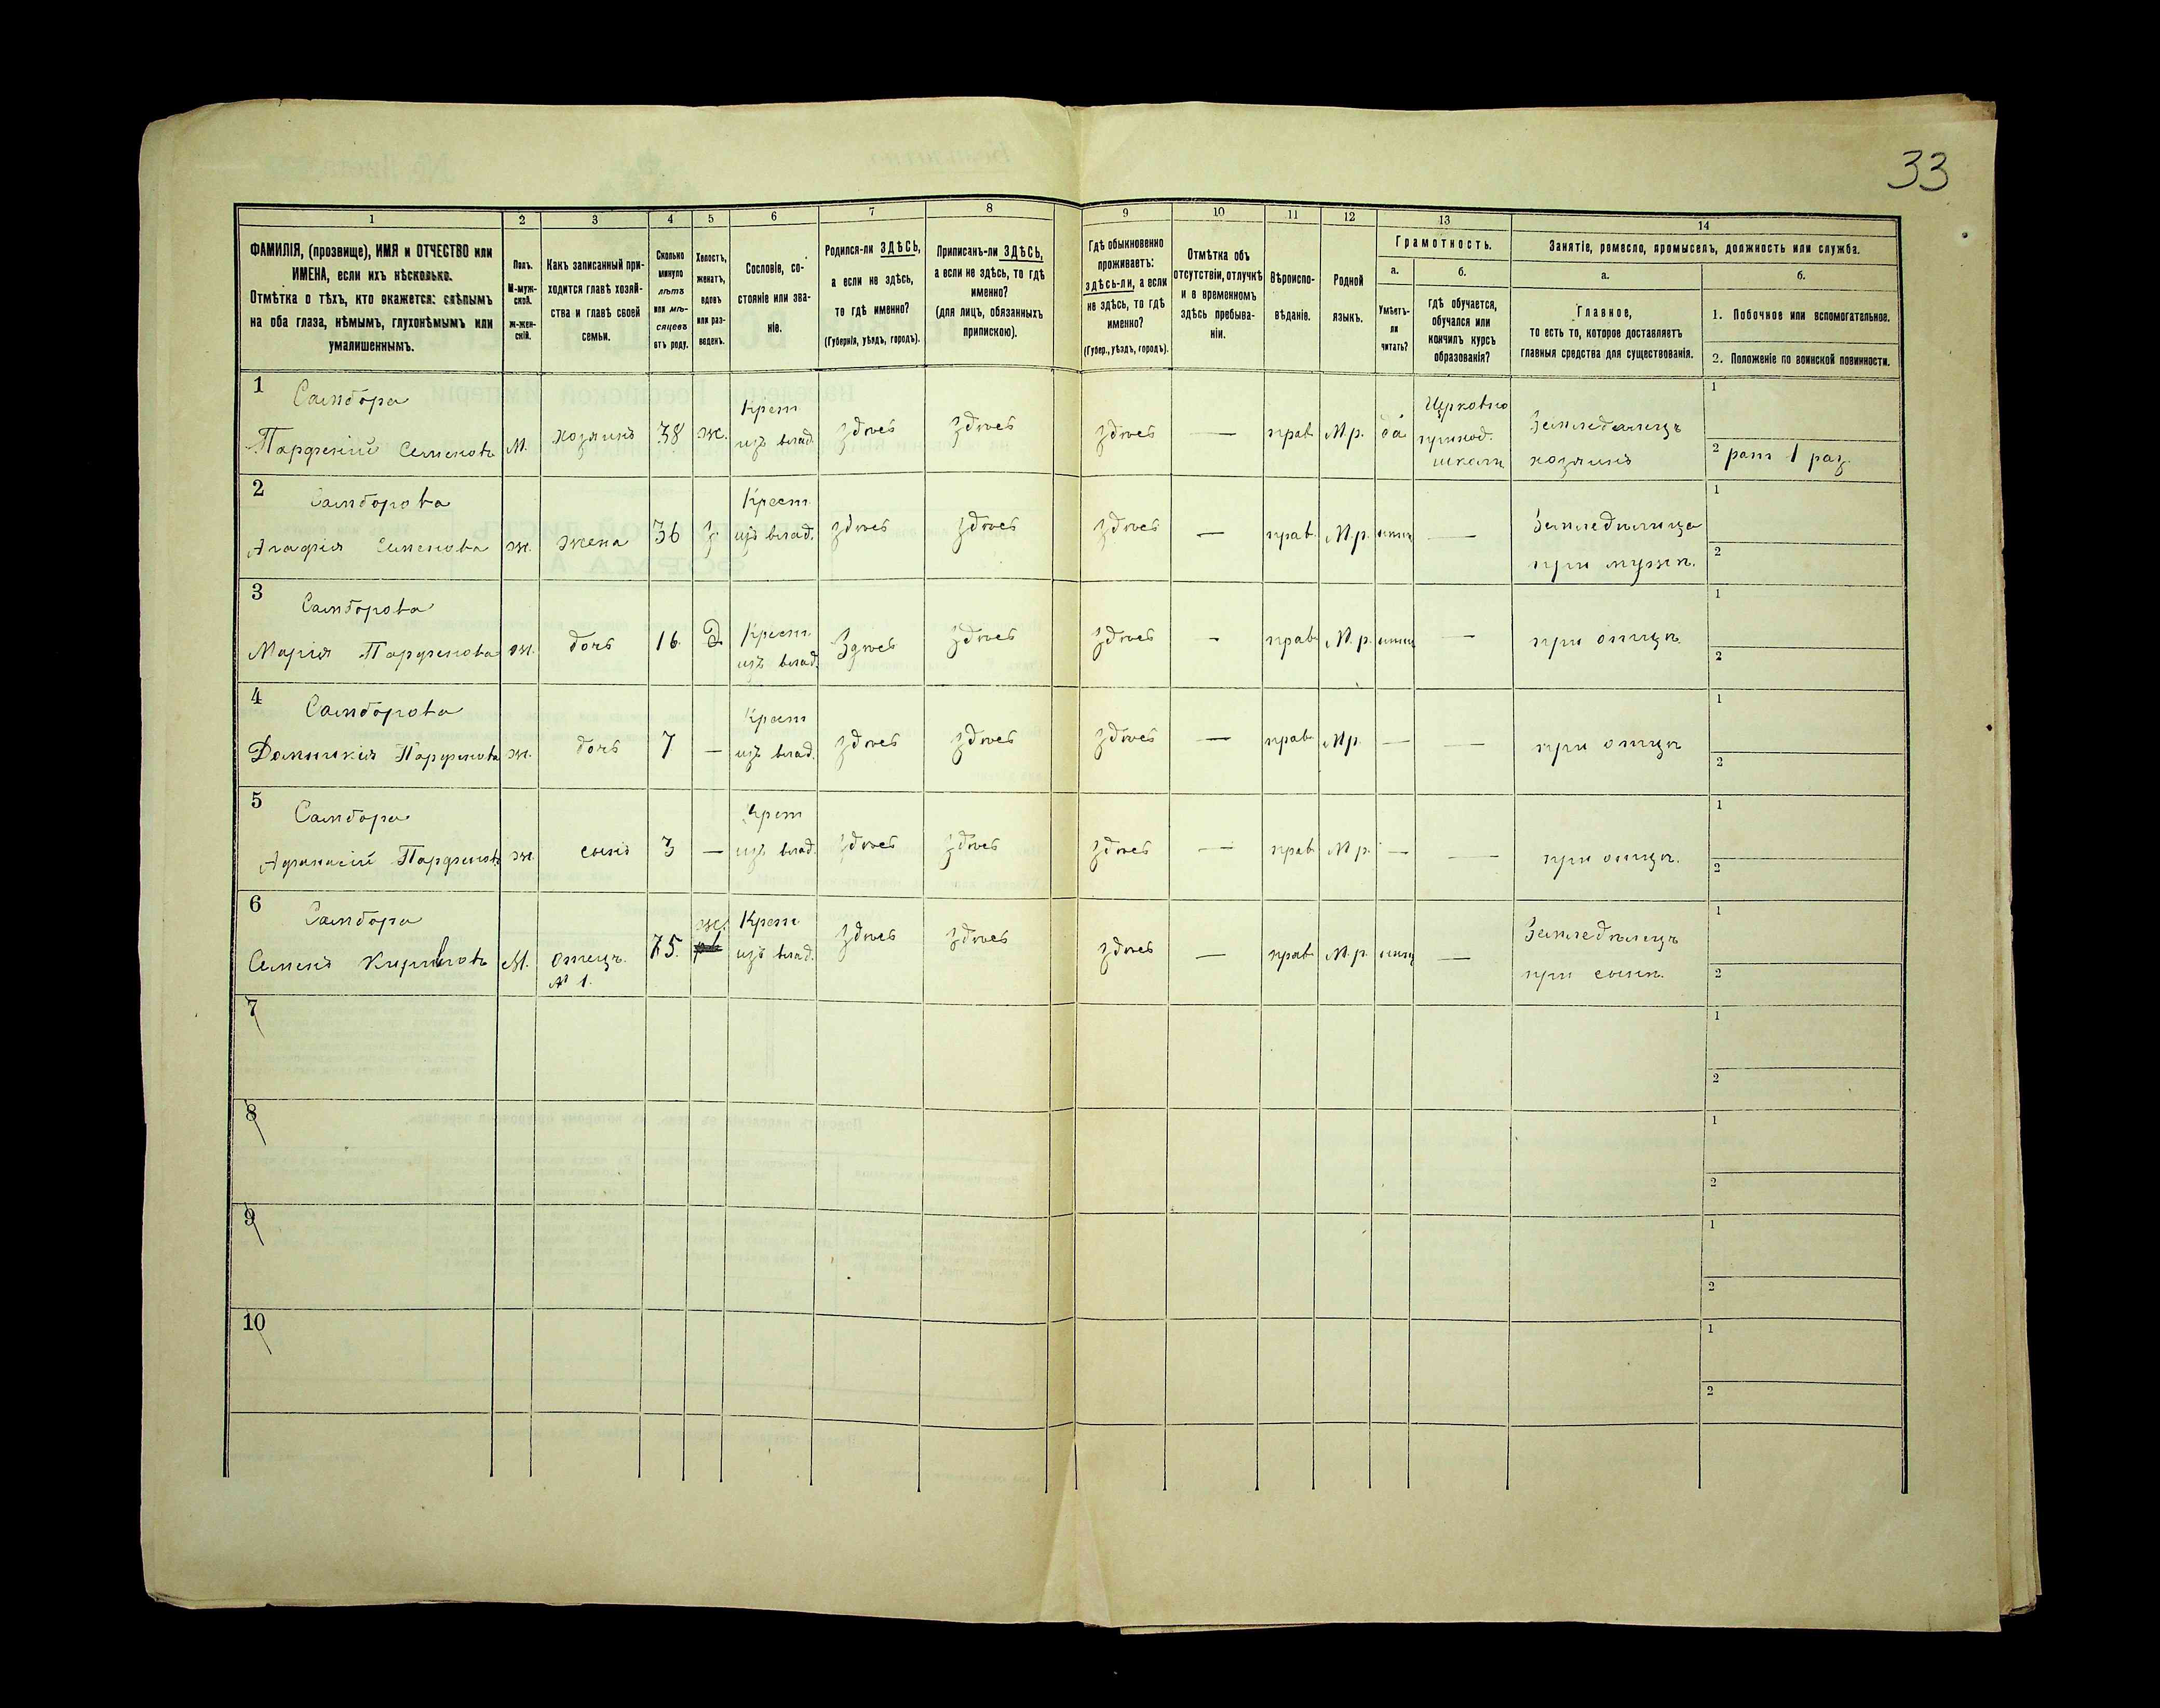 33
1 2 3 4 5 6 7 8 9 10 11 12 13 14
ФАМИЛІЯ, (прозвище), ИМЯ и ОТЧЕСТВО или
ИМЕНА, если ихъ нѣсколько.
Отмѣтка о тѣхъ, кто окажется: слѣпымъ
на оба глаза, нѣмымъ, глухонѣмымъ или
умалишеннымъ.
Полъ.
М-муж-
ской.
ж-жен-
скій.
Какъ записанный при-
ходится главѣ хозяй-
ства и главѣ своей
семьи.
Сколько
минуло
лѣтъ
или мѣ-
сяцевъ
отъ роду.
Холостъ,
женатъ,
вдовъ
или раз-
веденъ.
Сословіе, со-
стояніе или зва-
ніе.
Родился-ли ЗДѢСЬ,
а если не здѣсь,
то гдѣ именно?
(Губернія, уѣздъ, городъ).
Приписанъ-ли ЗДѢСЬ,
а если не здѣсь, то гдѣ
именно?
(для лицъ, обязанныхъ
припискою).
Гдѣ обыкновенно
проживаетъ:
здѣсь-ли, а если
не здѣсь, то гдѣ
именно?
(Губер., уѣздъ, городъ).
Отмѣтка объ
отсутствіи, отлучкѣ
и о временномъ
здѣсь пребыва-
ніи.
Вѣроиспо-
вѣданіе.
Родной
языкъ.
Грамотность.
а.
Умѣетъ-
ли
читать?
б.
гдѣ обучается,
обучался или
кончилъ курсъ
образованія?
Занятіе, ремесло, промыселъ, должность или служба.
а.
Главное,
то есть то, которое доставляетъ
главныя средства для существованія.
б.
1. Побочное или вспомогательное.
2. Положеніе по воинской повинности.
1 Самбора Крест. Церковно 1
Парфеній Семеновъ М. хозяинъ 38 ж. изъ влад. здѣсь здѣсь здѣсь — прав. М.р. да приход. Земледѣлецъ
школы хозяинъ 2 рат 1 раз.
2 Самборова Крест. 1
Агафія Семенова ж. жена 36 з. изъ влад. здѣсь здѣсь здѣсь — прав. М.р. — Земледѣлица
при мужѣ. 2
3 Самборова 1
Марія Парфенова ж. дочь 16. Д Крест. здѣсь здѣсь здѣсь — прав. М.р. — при отцѣ
изъ влад. 2
4 Самборова Крест 1
Домникія Парфенова ж. дочь 7 — изъ влад. здѣсь здѣсь здѣсь — прав. М.р. — — при отцѣ
2
5 Самбора Крест 1
Афанасій Парфеновъ ж. сынъ 3 — изъ влад. здѣсь здѣсь здѣсь — прав. М.р. — — при отцѣ.
2
6 Самбора ж. Крест 1
Семенъ Кириловъ М. отецъ. 75. изъ влад. здѣсь здѣсь здѣсь — прав. М.р. — Земледѣлецъ
№ 1. при сынѣ. 2
7 1
2
8 1
2
9 1
2
10 1
2